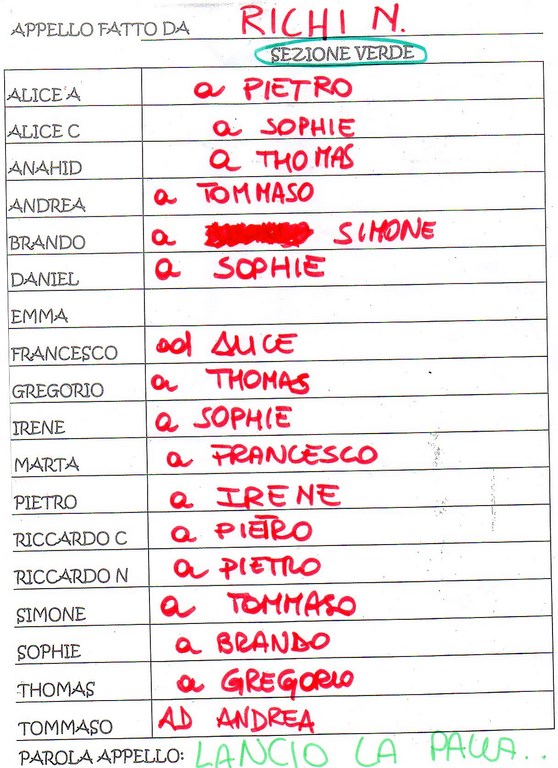 APPELLO FATTO DA RICHI N.
SEZIONE VERDE
ALICE A a PIETRO
ALICE C a SOPHIE
ANAHID a THOMAS
ANDREA a TOMMASO
BRANDO a SIMONE
DANIEL a SOPHIE
EMMA
FRANCESCO ad ALICE
GREGORIO a THOMAS
IRENE a SOPHIE
MARTA a FRANCESCO
PIETRO a IRENE
RICCARDO C a PIETRO
RICCARDO N a PIETRO
SIMONE a TOMMASO
SOPHIE a BRANDO
THOMAS a GREGORIO
TOMMASO AD ANDREA
PAROLA APPELLO: LANCIO LA PALLA..